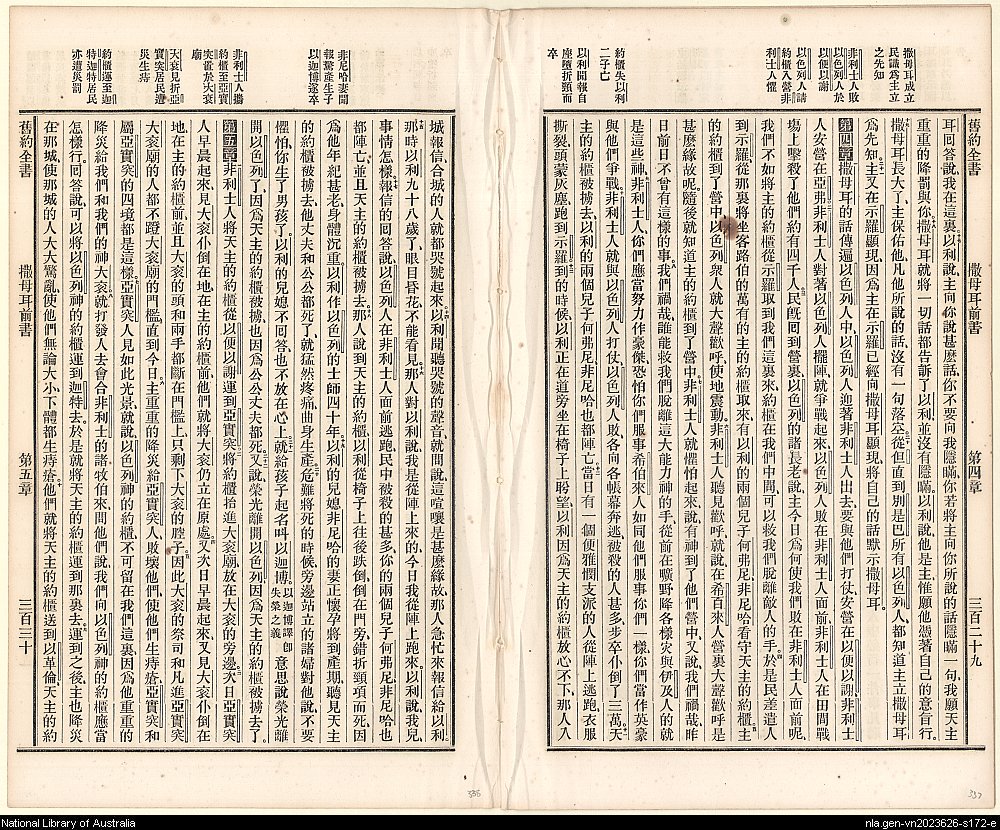 撒母耳成立
民識爲主立
之先知
非利士人敗
以色列人於
以便以謝
以色列人請
約櫃入營非
利士人懼
約櫃失以利
二子亡
以利聞報自
座墮折頸而
卒
舊約全書 撒母耳前書 第四章 三百二十九
耳回答說我在這裏以利說主向你說甚麽話你不要向我隱瞞你若將主向你所說的話隱瞞一句我願天主
重重的降罰與你撒母耳就將一切話都告訴了以利並沒有隱瞞以利說他是主惟願他憑著自己的意旨行
撒母耳長大了主保佑他凡他所說的話沒有一句落空從但直到別是巴所有以色列人都知道主立撒母耳
爲先知主又在示羅顯現因爲主在示羅已經向撒母耳顯現將自己的話默示撒母耳
第四章撒母耳的話傳遍以色列人中以色列人迎著非利士人出去要與他們打仗安營在以便以謝非利士
人安營在亞弗非利士人對著以色列人擺陣就爭戰起來以色列人敗在非利士人面前非利士人在田間戰
塲上擊殺了他們約有四千人民旣回到營裏以色列的諸長老說主今日爲何使我們敗在非利士人面前呢
我們不如將主的約櫃從示羅取到我們這裏來約櫃在我們中間可以救我們脫離敵人的手於是民差遣人
到示羅從那裏將坐客路伯的萬有的主的約櫃取來有以利的兩個兒子何弗尼非尼哈看守天主的約櫃主
的約櫃到了營中以色列衆人就大聲歡呼使地震動非利士人聽見歡呼就說在希百來人營裏大聲歡呼是
甚麽緣故呢隨後就知道主的約櫃到了營中非利士人就懼怕起來說有神到了他們營中又說我們禍哉昨
日前日不曾有這樣的事我們禍哉誰能救我們脫離這大能力神的手從前在曠野降各樣災與伊及人的就
是這些神非利士人你們應當努力作豪傑恐怕你們服事希伯來人如同他們服事你們一樣你們當作英豪
與他們爭戰非利士人就與以色列人打仗以色列人敗各向各帳幕奔逃被殺的人甚多步卒仆倒了三萬天
主的約櫃被擄去以利的兩個兒子何弗尼非尼哈也都陣亡當日有一個便雅憫支派的人從陣上逃跑衣服
撕裂頭蒙灰塵跑到示羅到的時候以利正在道旁坐在椅子上盼望以利因爲天主的約櫃放心不下那人入
非尼哈妻聞
報驚產生子
以迦博遂卒
非利士人攜
約櫃至亞實
突置於大衮
廟
大衮見折亞
實突居民遭
災生痔
約櫃運至迦
特迦特居民
亦遭災罰
城報信合城的人就都哭號起來以利聞聽哭號的聲音就問說這喧嚷是甚麽緣故那人急忙來報信給以利
那時以利九十八歲了眼目昏花不能看見那人對以利說我是從陣上來的今日我從陣上跑來以利說我兒
事情怎樣報信的回答說以色列人在非利士人面前逃跑民中被殺的甚多你的兩個兒子何弗尼非尼哈也
都陣亡並且天主的約櫃被擄去那人說到天主的約櫃以利從椅子上往後跌倒在門旁錯折頸項而死因
爲他年紀甚老身體沉重以利作以色列的士師四十年以利的兒媳非尼哈的妻正懷孕將到產期聽見天主
的約櫃被擄去他丈夫和公公都死了就猛然疼痛曲身生產危難將死的時候旁邊站立的諸婦對他說不要
懼怕你生了男孩了以利的兒媳不回答也不放在心上就給孩子起名呌以迦博以迦博譯卽失榮之義意思說榮光離
開以色列了因爲天主的約櫃被擄也因爲公公丈夫都死又說榮光離開以色列因爲天主的約櫃被擄去了
第五章非利士人將天主的約櫃從以便以謝運到亞實突將約櫃抬進大衮廟放在大衮的旁邊次日亞實突
人早晨起來見大衮仆倒在地在主的約櫃前他們就將大衮仍立在原處又次日早晨起來又見大衮仆倒在
地在主的約櫃前並且大衮的頭和兩手都斷在門檻上只剩下大衮的腔子因此大衮的祭司和凡進亞實突
大衮廟的人都不蹬大衮廟的門檻直到今日主重重的降災給亞實突人敗壞他們使他們生痔瘡亞實突和
屬亞實突的四境都是這樣亞實突人見如此光景就說以色列神的約櫃不可留在我們這裏因爲他重重的
降災給我們和我們的神大衮就打發人去會合非利士的諸牧伯來問他們說我們向以色列神的約櫃應當
怎樣行回答說可以將以色列神的約櫃運到迦特去於是就將天主的約櫃運到那裏去運到之後主也降災
在那城使那城的人大大驚亂使他們無論大小下體都生痔瘡他們就將天主的約櫃送到以革倫天主的約
舊約全書 撒母耳前書 第五章 三百三十
338
337
National Library of Australia
nla.gen-vn2023626-s172-e